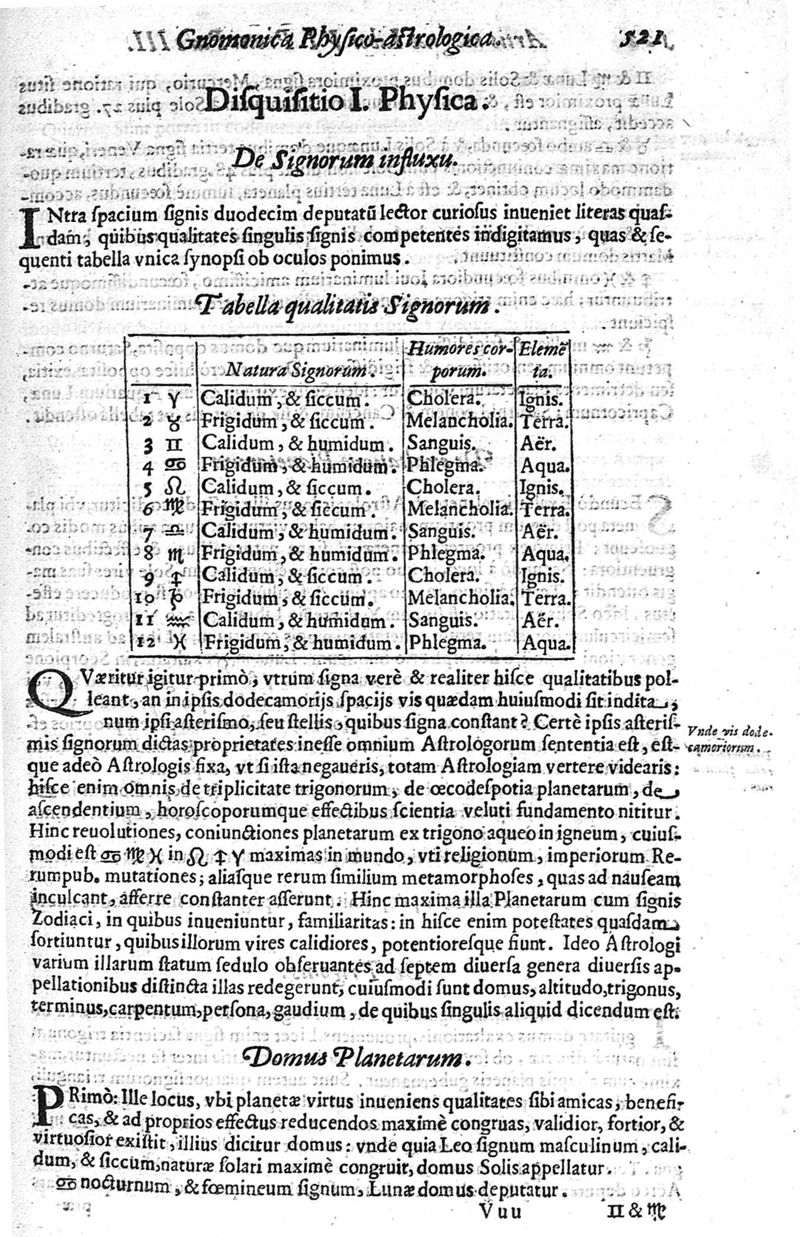 Gnomonica Physico-astrologica. 521
Disquisitio I. Physica.
De Signorum influxu.
INtra spacium signis duodecim deputatũ lector curiosus inueniet literas quas-
dam, quibus qualitates singulis signis competentes indigitamus, quas & se-
quenti tabella vnica synopsi ob oculos ponimus.
Tabella qualitatis Signorum.
Natura Signorum. Humores cor- Elemẽ
porum. ta.
1 ♈ Calidum, & siccum. Cholera. Ignis.
2 ♉ Frigidum, & siccum. Melancholia. Terra.
3 ♊ Calidum, & humidum. Sanguis. Aër.
4 ♋ Frigidum, & humidum. Phlegma. Aqua.
5 ♌ Calidum, & siccum. Cholera. Ignis.
6 ♍ Frigidum, & siccum. Melancholia. Terra.
7 ♎ Calidum, & humidum. Sanguis. Aër.
8 ♏ Frigidum, & humidum. Phlegma. Aqua.
9 ♐ Calidum, & siccum. Cholera. Ignis.
10 ♑ Frigidum, & siccum. Melancholia. Terra.
11 ♒ Calidum, & humidum. Sanguis. Aër.
12 ♓ Frigidum, & humidum. Phlegma. Aqua.
QVæritur igitur primò, vtrum signa verè & realiter hisce qualitatibus pol-
leant, an in ipsis dodecamorijs spacijs vis quædam huiusmodi sit indita,
num ipsi asterismo, seu stellis, quibus signa constant? Certè ipsis asteris-
mis signorum dictas proprietates inesse omnium Astrologorum sententia est, est-
que adeò Astrologis fixa, vt si ista negaueris, totam Astrologiam vertere videaris:
hisce enim omnis de triplicitate trigonorum, de œcodespotia planetarum, de
ascendentium, horoscoporumque effectibus scientia veluti fundamento nititur.
Hinc reuolutiones, coniunctiones planetarum ex trigono aqueo in igneum, cuius-
modi est ♋ ♍ ♓ in ♌ ♐ ♈ maximas in mundo, vti religionum, imperiorum Re-
rumpub. mutationes; aliasque rerum similium metamorphoses, quas ad nauseam
inculcant, afferre constanter asserunt. Hinc maxima illa Planetarum cum signis
Zodiaci, in quibus inueniuntur, familiaritas: in hisce enim potestates quasdam
sortiuntur, quibus illorum vires calidiores, potentioresque fiunt. Ideo Astrologi
varium illarum statum sedulo obseruantes ad septem diuersa genera diuersis ap-
pellationibus distincta illas redegerunt, cuiusmodi sunt domus, altitudo, trigonus,
terminus, carpentum, persona, gaudium, de quibus singulis aliquid dicendum est.
Vnde vis dode-
camoriorum.
Domus Planetarum.
PRimò: Ille locus, vbi planetæ virtus inueniens qualitates sibi amicas, benefi-
cas, & ad proprios effectus reducendos maximè congruas, validior, fortior, &
virtuosior existit, illius dicitur domus: vnde quia Leo signum masculinum, cali-
dum, & siccum, naturæ solari maximè congruit, domus Solis appellatur.
♋ nocturnum, & fœmineum signum, Lunæ domus deputatur.
Vuu ♊ & ♍